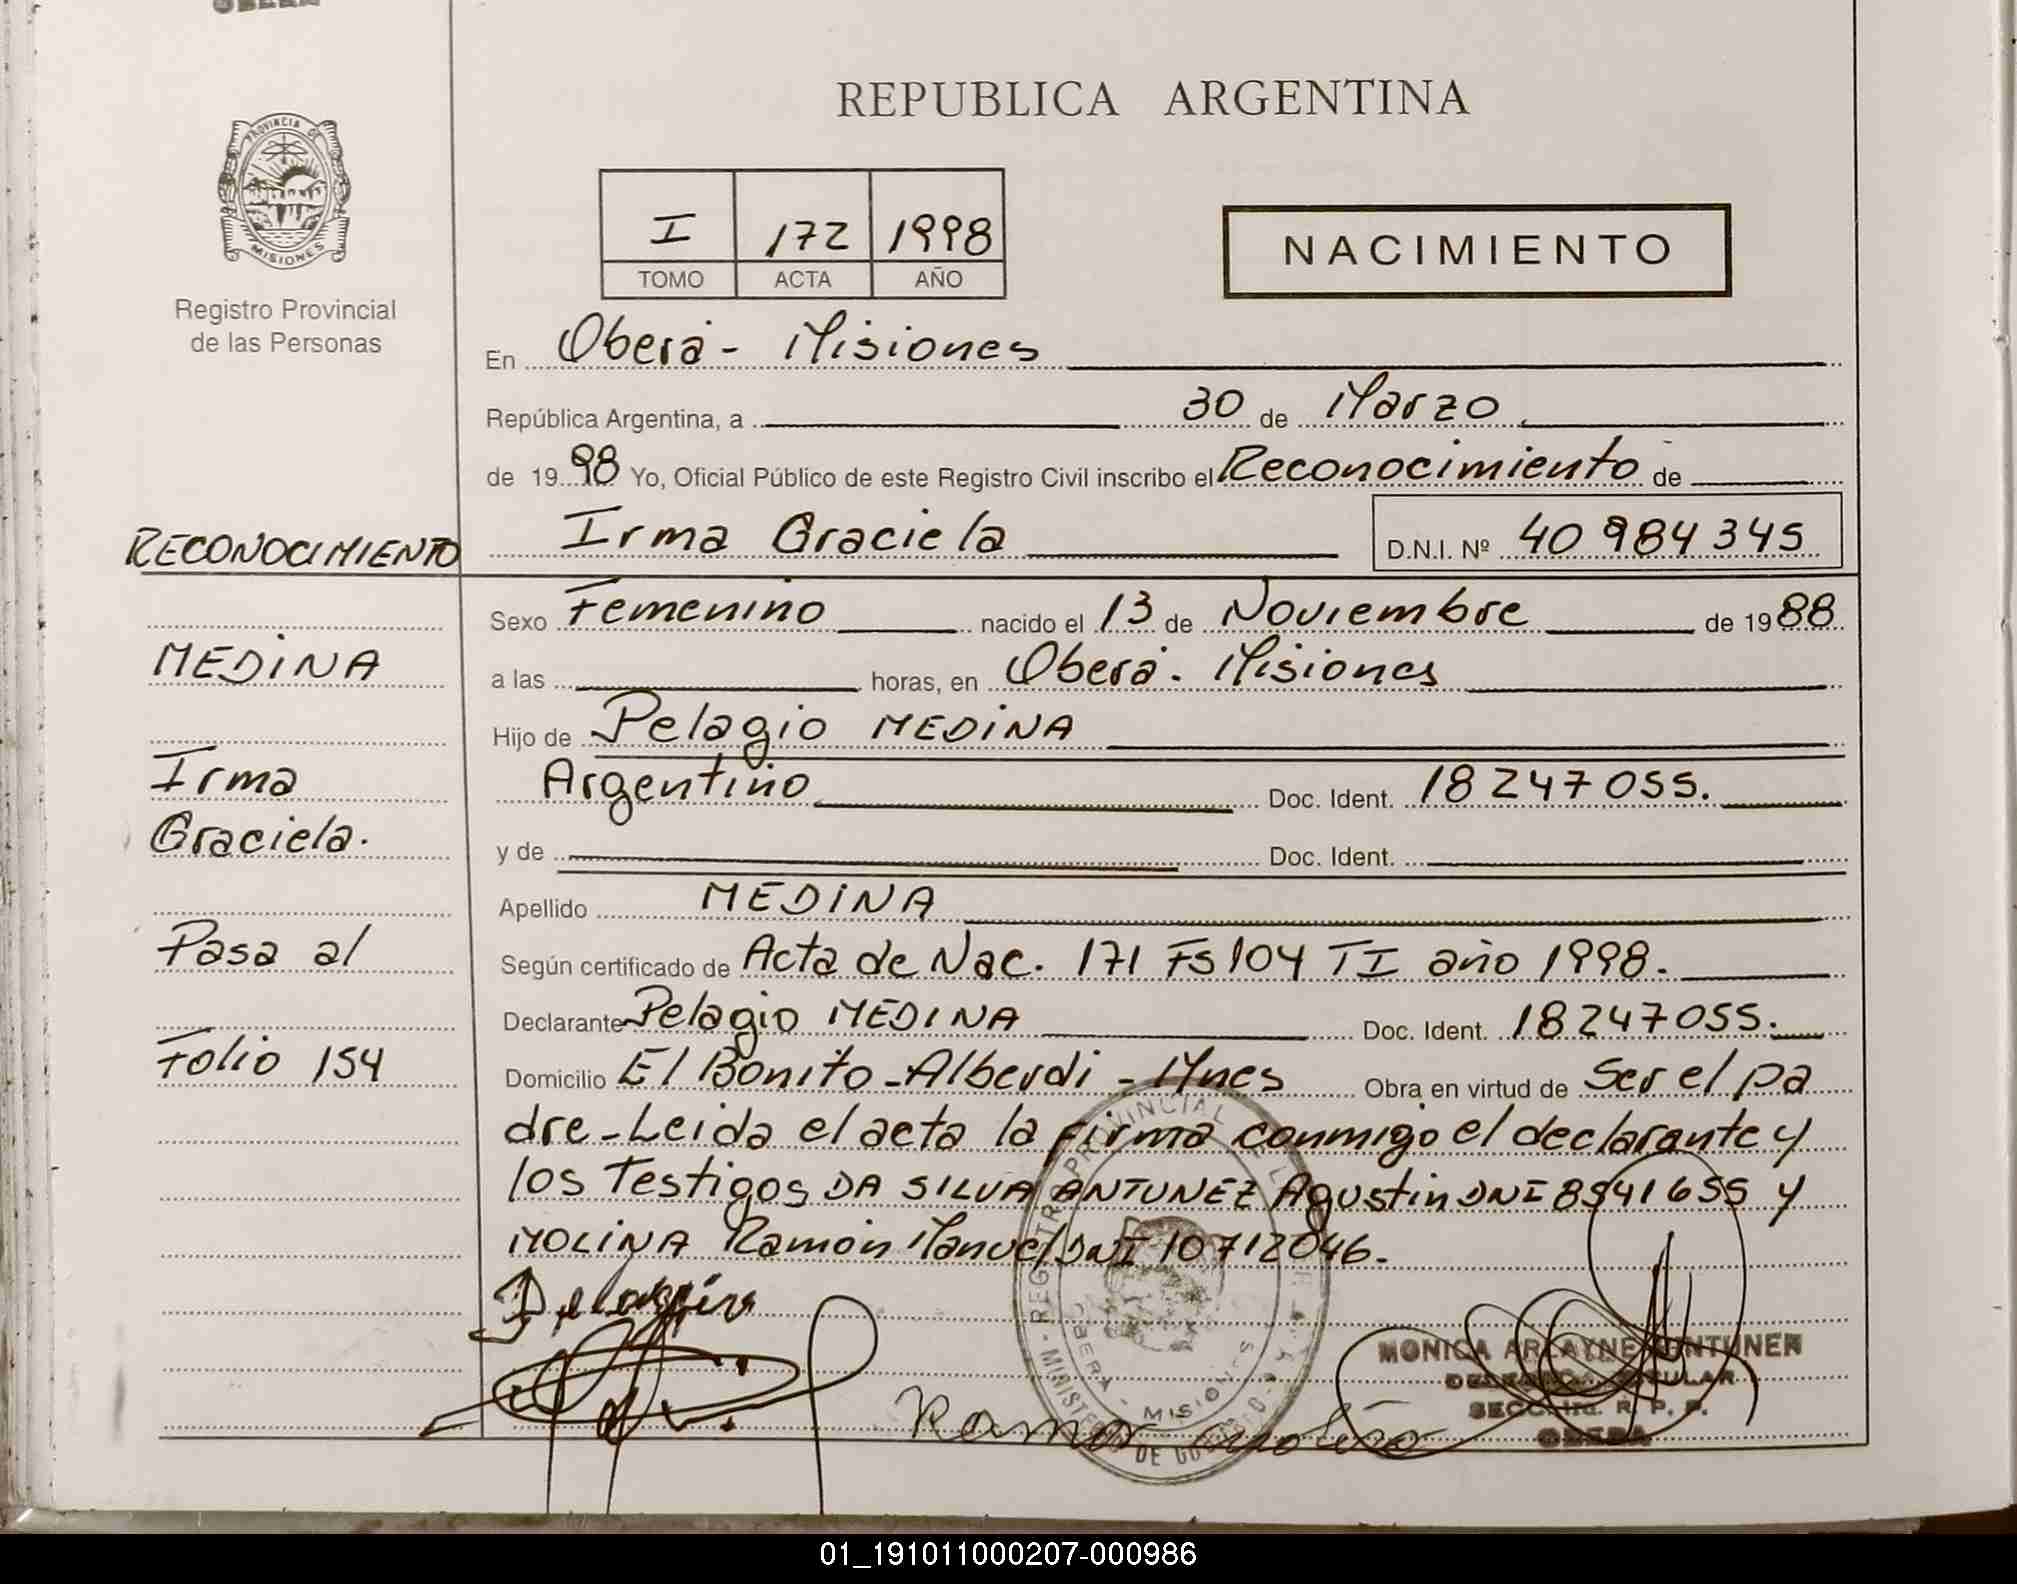 REPUBLICA ARGENTINA
PROVINCIA DE
MISIONES
Registro Provincial
de las Personas
I 172 1998
TOMO ACTA AÑO
NACIMIENTO
En Oberá - Misiones
República Argentina, a 30 de Marzo
de 1998 Yo, Oficial Público de este Registro Civil inscribo el Reconocimiento de
Irma Graciela D.N.I. Nº 40 984 345
RECONOCIMIENTO
MEDINA
Irma
Graciela.
Pasa al
Folio 154
Sexo Femenino nacido el 13 de Noviembre de 1988
a las horas, en Oberá. Misiones
Hijo de Pelagio MEDINA
Argentino Doc. Ident. 18 247 055.
y de Doc. Ident.
Apellido MEDINA
Según certificado de Acta de Nac. 171 Fs 104 TI año 1998.
Declarante Pelagio MEDINA Doc. Ident. 18 247 055.
Domicilio El Bonito - Alberdi - Mnes Obra en virtud de Ser el pa
dre - Leida el acta la firma conmigo el declarante y
los Testigos DA SILVA ANTUNEZ Agustin DNI 8541655 y
MOLINA Ramón Manuel DNI 10712046.
MONICA ARLAYNE
TITULAR
SECC. 1ra. R. P. P.
OBERA
REGISTRO PROVINCIAL DE LAS
MINISTERIO DE GOBIERNO
OBERA - MISIONES
01_191011000207-000986